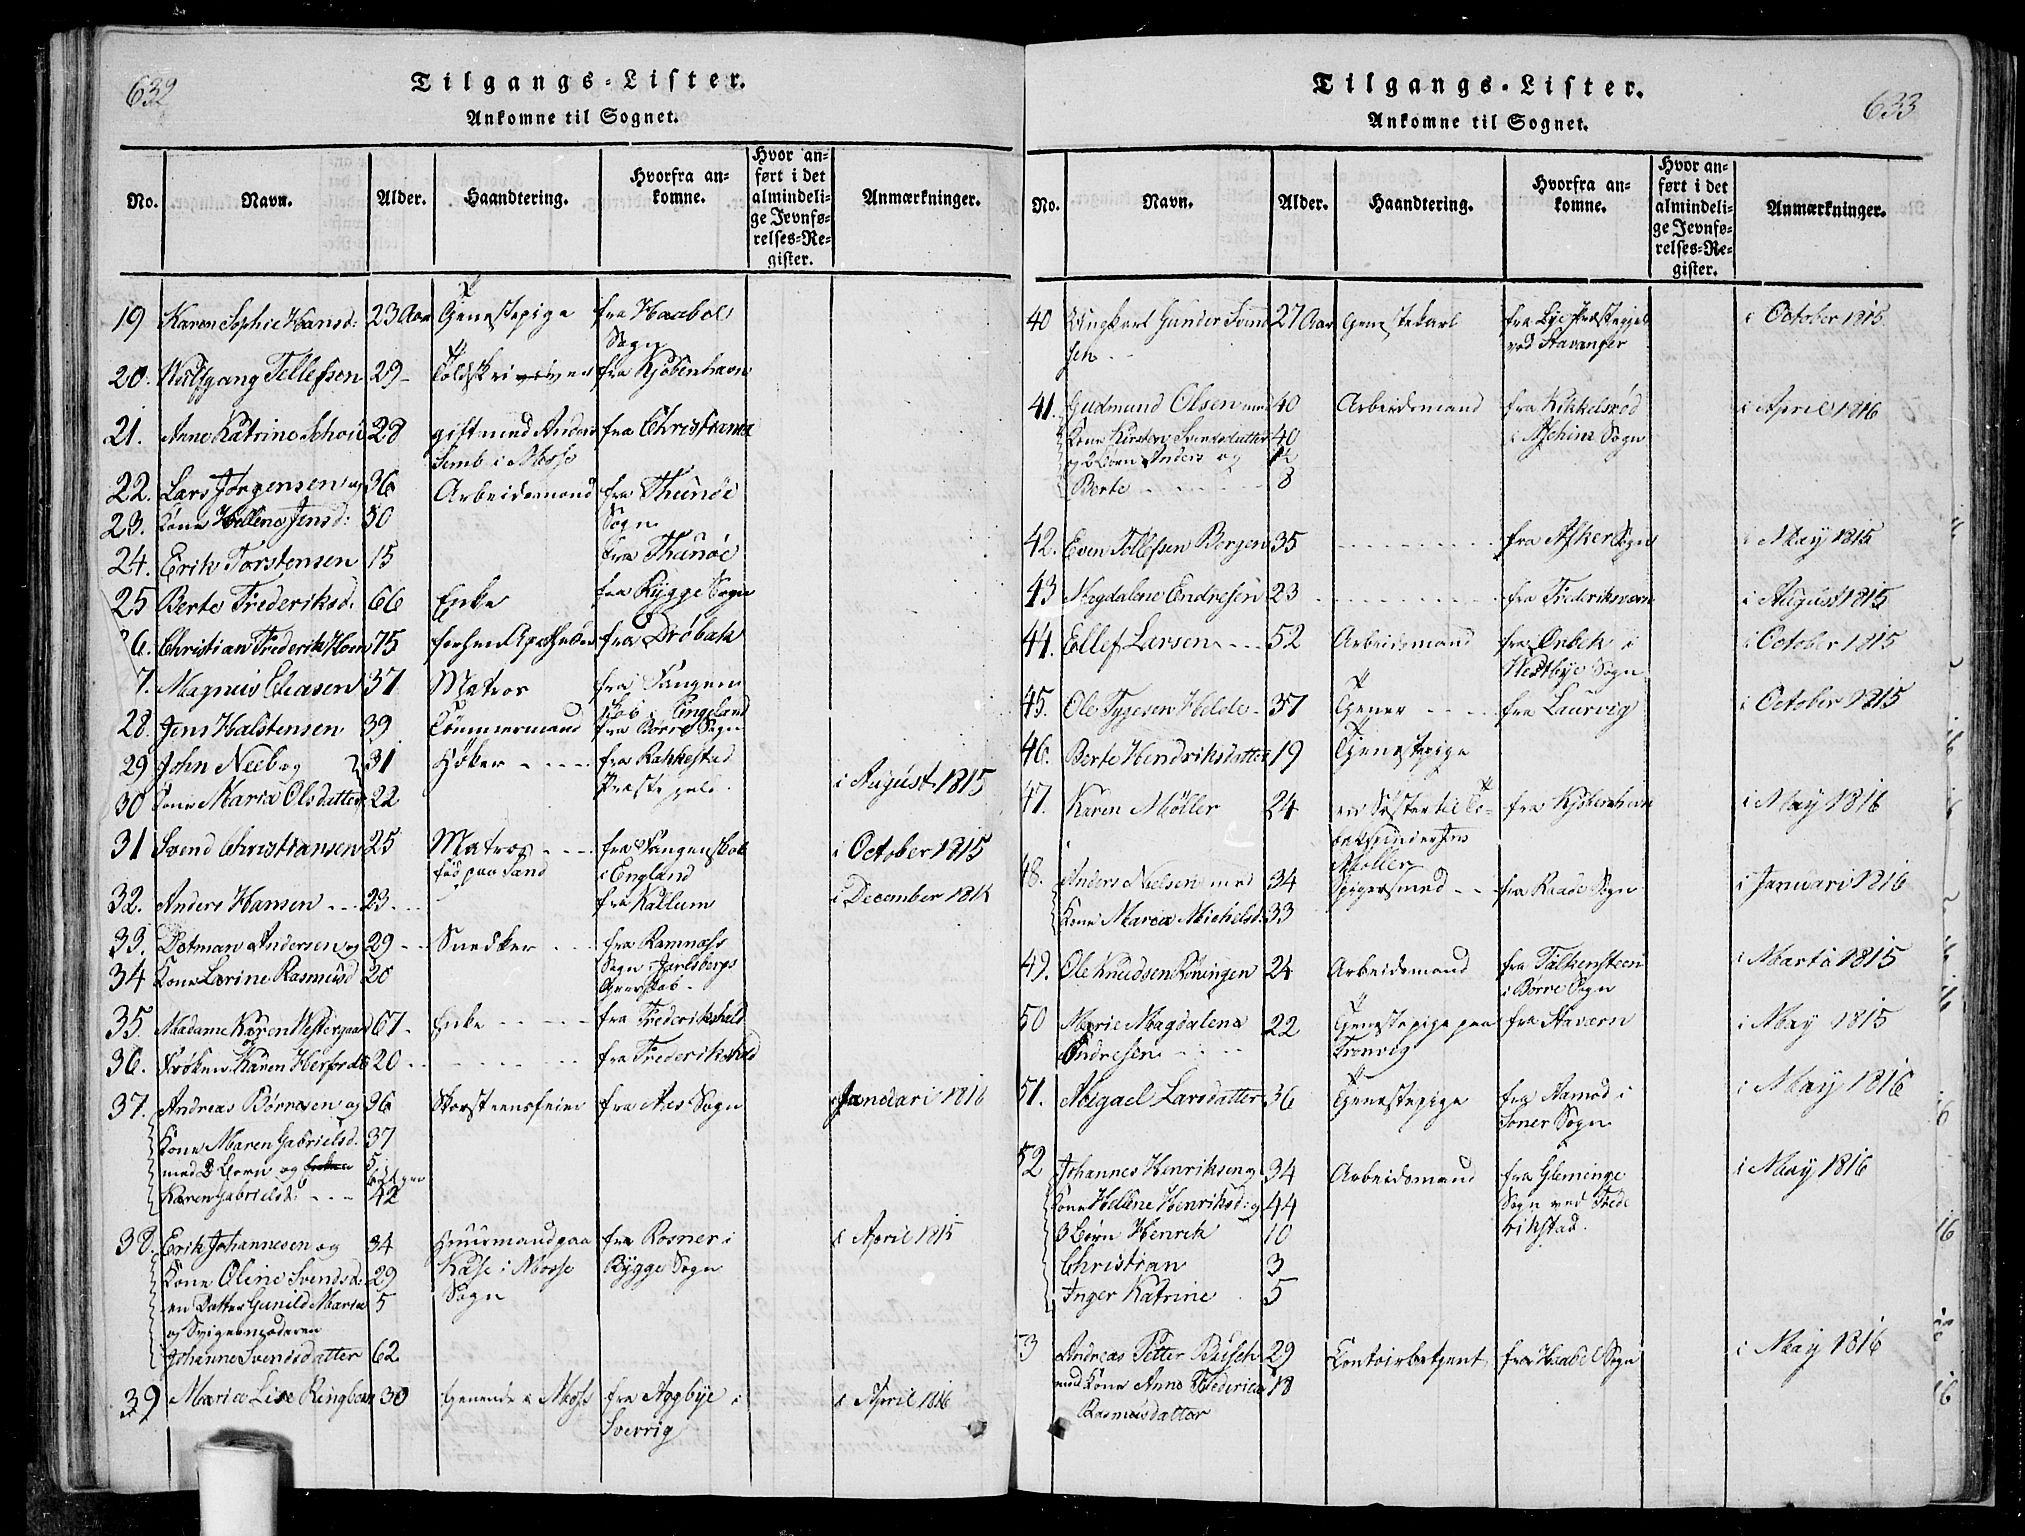 632
Tilgangs-Lister.
Ankomne til Sognet.
No. Navn. Alder. Haandtering. Hvorfra an-
komne. Hvor an-
ført i det
almindeli-
ge Jevnfø-
relses-Re-
gister. Anmærkninger.
19 Karen Sophie Hansd: 23 Aar Tjenestepige fra Haabøl
Sogn
20. Wulfgang Tellefsen 29 Toldskriver fra Kjøbenhavn
21. Anne Katrine 28 gift med Anders fra Christiania
Semb i Mosse
22. Lars Jørgensen og 36 Arbeidsmand fra Thunøe
23. Kone Hellene Jensd: 30 Sogn
24. Erik Torstensen 15 fra Thunøe
25 Berte Frederiksd. 66 Enke fra Rygge Sogn
26. Christian Frederik Horn 75 fra Drøbak
7. Magnus 37 Matros fra Fangen
skab i Engeland
28. Jens Halstensen 39 Tømmermand fra Borre Sogn
29 John Neeb og 31 Høker - - - fra Rakkestad
Præstegeld.
30 Kone Maria Olsdatter 22 i August 1815
31 Svend Christiansen 25 Matros - - - fra Fangenskab i October 1815
fød paa Sand i England
32. Anders Hansen - - 23 - - fra Kallum i December 1814
33. Dotman Andersen og 29 - - Snedker - - fra Ramnæss
34 Kone Lærine Rasmusd 28 Sogn i Jarlsbergs
Grevskab -
35. Madame Karen Westergaard 67 - Enke - - - - fra Frederikshald
36. Frøken Karen Herfordt 20 - - - - - - - fra Frederikshald
37. Andreas Børresen og 36 Skorsteensfeier fra Aas Sogn i Januari 1816
Kone Maren Gabrielsd. 37
med 2 Børn og
5
Karen Gabrielsd: - - - 42
38. Erik Johannesen og 34 Huusmand paa fra Rosner i i April 1815
Kone Oline Svendsd: 29 Kase i Mosse Rygge Sogn
en Datter Gunild Maria 5 Sogn
og Svigermoderen
Johanne Svendsdatter 62
39 Marie Lise Ringborn 30 tjenende i Moss fra Aggbye i i April 1816
Sverrig
633
Tilgangs-Lister.
Ankomne til Sognet.
No. Navn. Alder. Haandtering. Hvorfra an-
komne. Hvor an-
ført i det
almindeli-
ge Jevnfø-
relses-Re-
gister. Anmærkninger.
40 Ungkarl Gunder Svend 27 Aar Tjenestekarl fra Lye Præstegjeld i October 1815
sen - - ved Stavanger
41. Gudmund Olsen med 40 Arbeidsmand fra Kikkelsrød i April 1816
Kone Kirsten Svendsdatter 40 i Aschim Sogn
og 2 Børn Anders og 12
Berte - - - - - 8
42. Even Tollefsen Bergen 35 - - - - - - - - fra Asker Sogn i May 1815
43 Magdalene Endresen 23 - - - - - - - - fra Frederiksværn i August 1815
44. Ellef Larsen - - - 52 Arbeidsmand fra Ørbek i i October 1815
Westbye Sogn
45. Ole Tygesen Helde - 37 Tjener - - - fra Laurvig i October 1815
46. Berte Hendriksdatter 19 Tjenestepige
47. Karen Møller 24 en Søster til To- fra Kjøbenhavn i May 1816
Jens
Møller
48. Anders Nielsen med 34 Spigersmed - - fra Raade Sogn i Januari 1816
Kone Maria Michelsd. 33
49. Ole Knudsen Røningen 24 Arbeidsmand fra Falkensteen i Marts 1815
i Borre Sogn
50 Marie Magdalena 22 Tjenestepige paa fra Stavern i May 1815
Andresen - - - - Tronvig
51. Abigael Larsdatter 36 Tjenestepige fra Aamod i i May 1816
Soner Sogn
52 Johannes Henriksen og 34 Arbeidsmand fra Gleminge i May 1816
Kone Hellene Henriksd: og 44 Sogn ved Frede
3 Børn Henrek 10 rikstad.
Christian 3
Inger Katrine 5
3 Andreas Petter Busch 29 Contoirbetjent fra Haabel Sogn i May 1816
med Kone Anne Frederica 18
Rasmusdatter